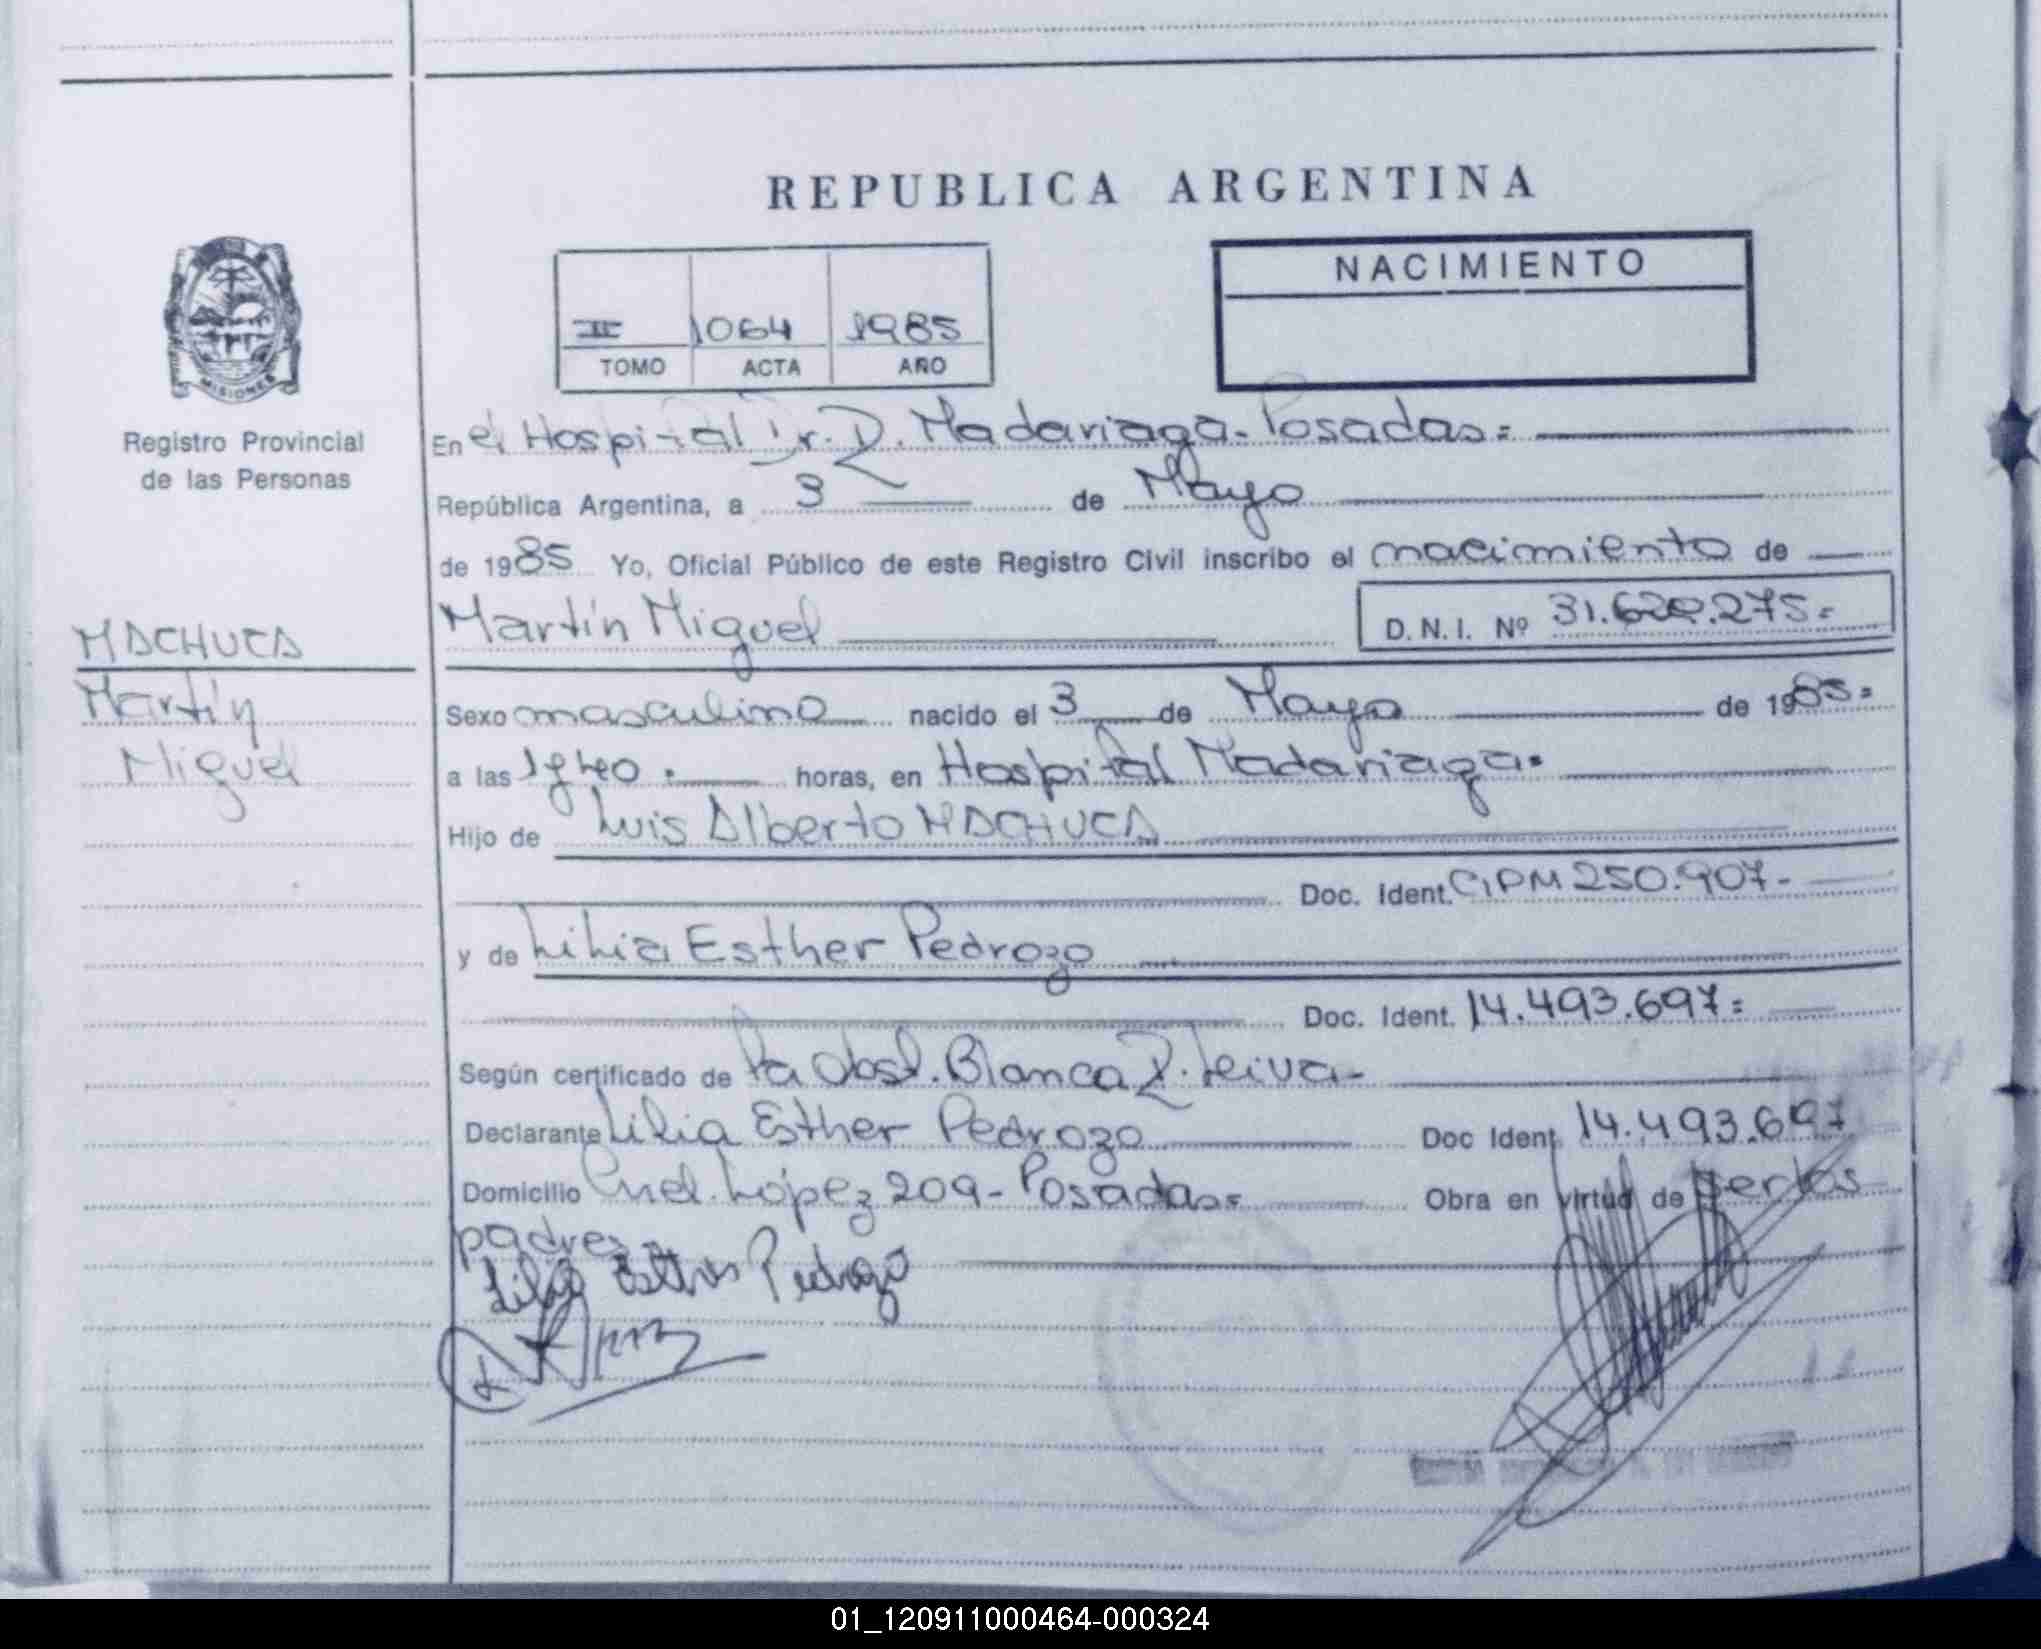 REPUBLICA ARGENTINA
NACIMIENTO
II 1064 1985
TOMO ACTA AÑO
MISIONES
Registro Provincial
de las Personas
En el Hospital Dr. R. Madariaga - Posadas=
República Argentina, a 3 de Mayo
de 1985 Yo, Oficial Público de este Registro Civil inscribo el nacimiento de
MACHUCA
Martín Miguel D. N. I. Nº 31.620.275=
Martín
Miguel
Sexo masculino nacido el 3 de Mayo de 1985=
a las 19,40 . horas, en Hospital Madariaga.
Hijo de Luis Alberto MACHUCA
Doc. Ident. CIPM 250.907-
y de Lilia Esther Pedrozo
Doc. Ident. 14.493.697=
Según certificado de la Obst. Blanca R. Leiva-
Declarante Lilia Esther Pedrozo Doc Ident. 14.493.697
Domicilio Cnel. López 209- Posadas= Obra en virtud de ser los
padres
Lilia Esther Pedrozo
01_120911000464-000324